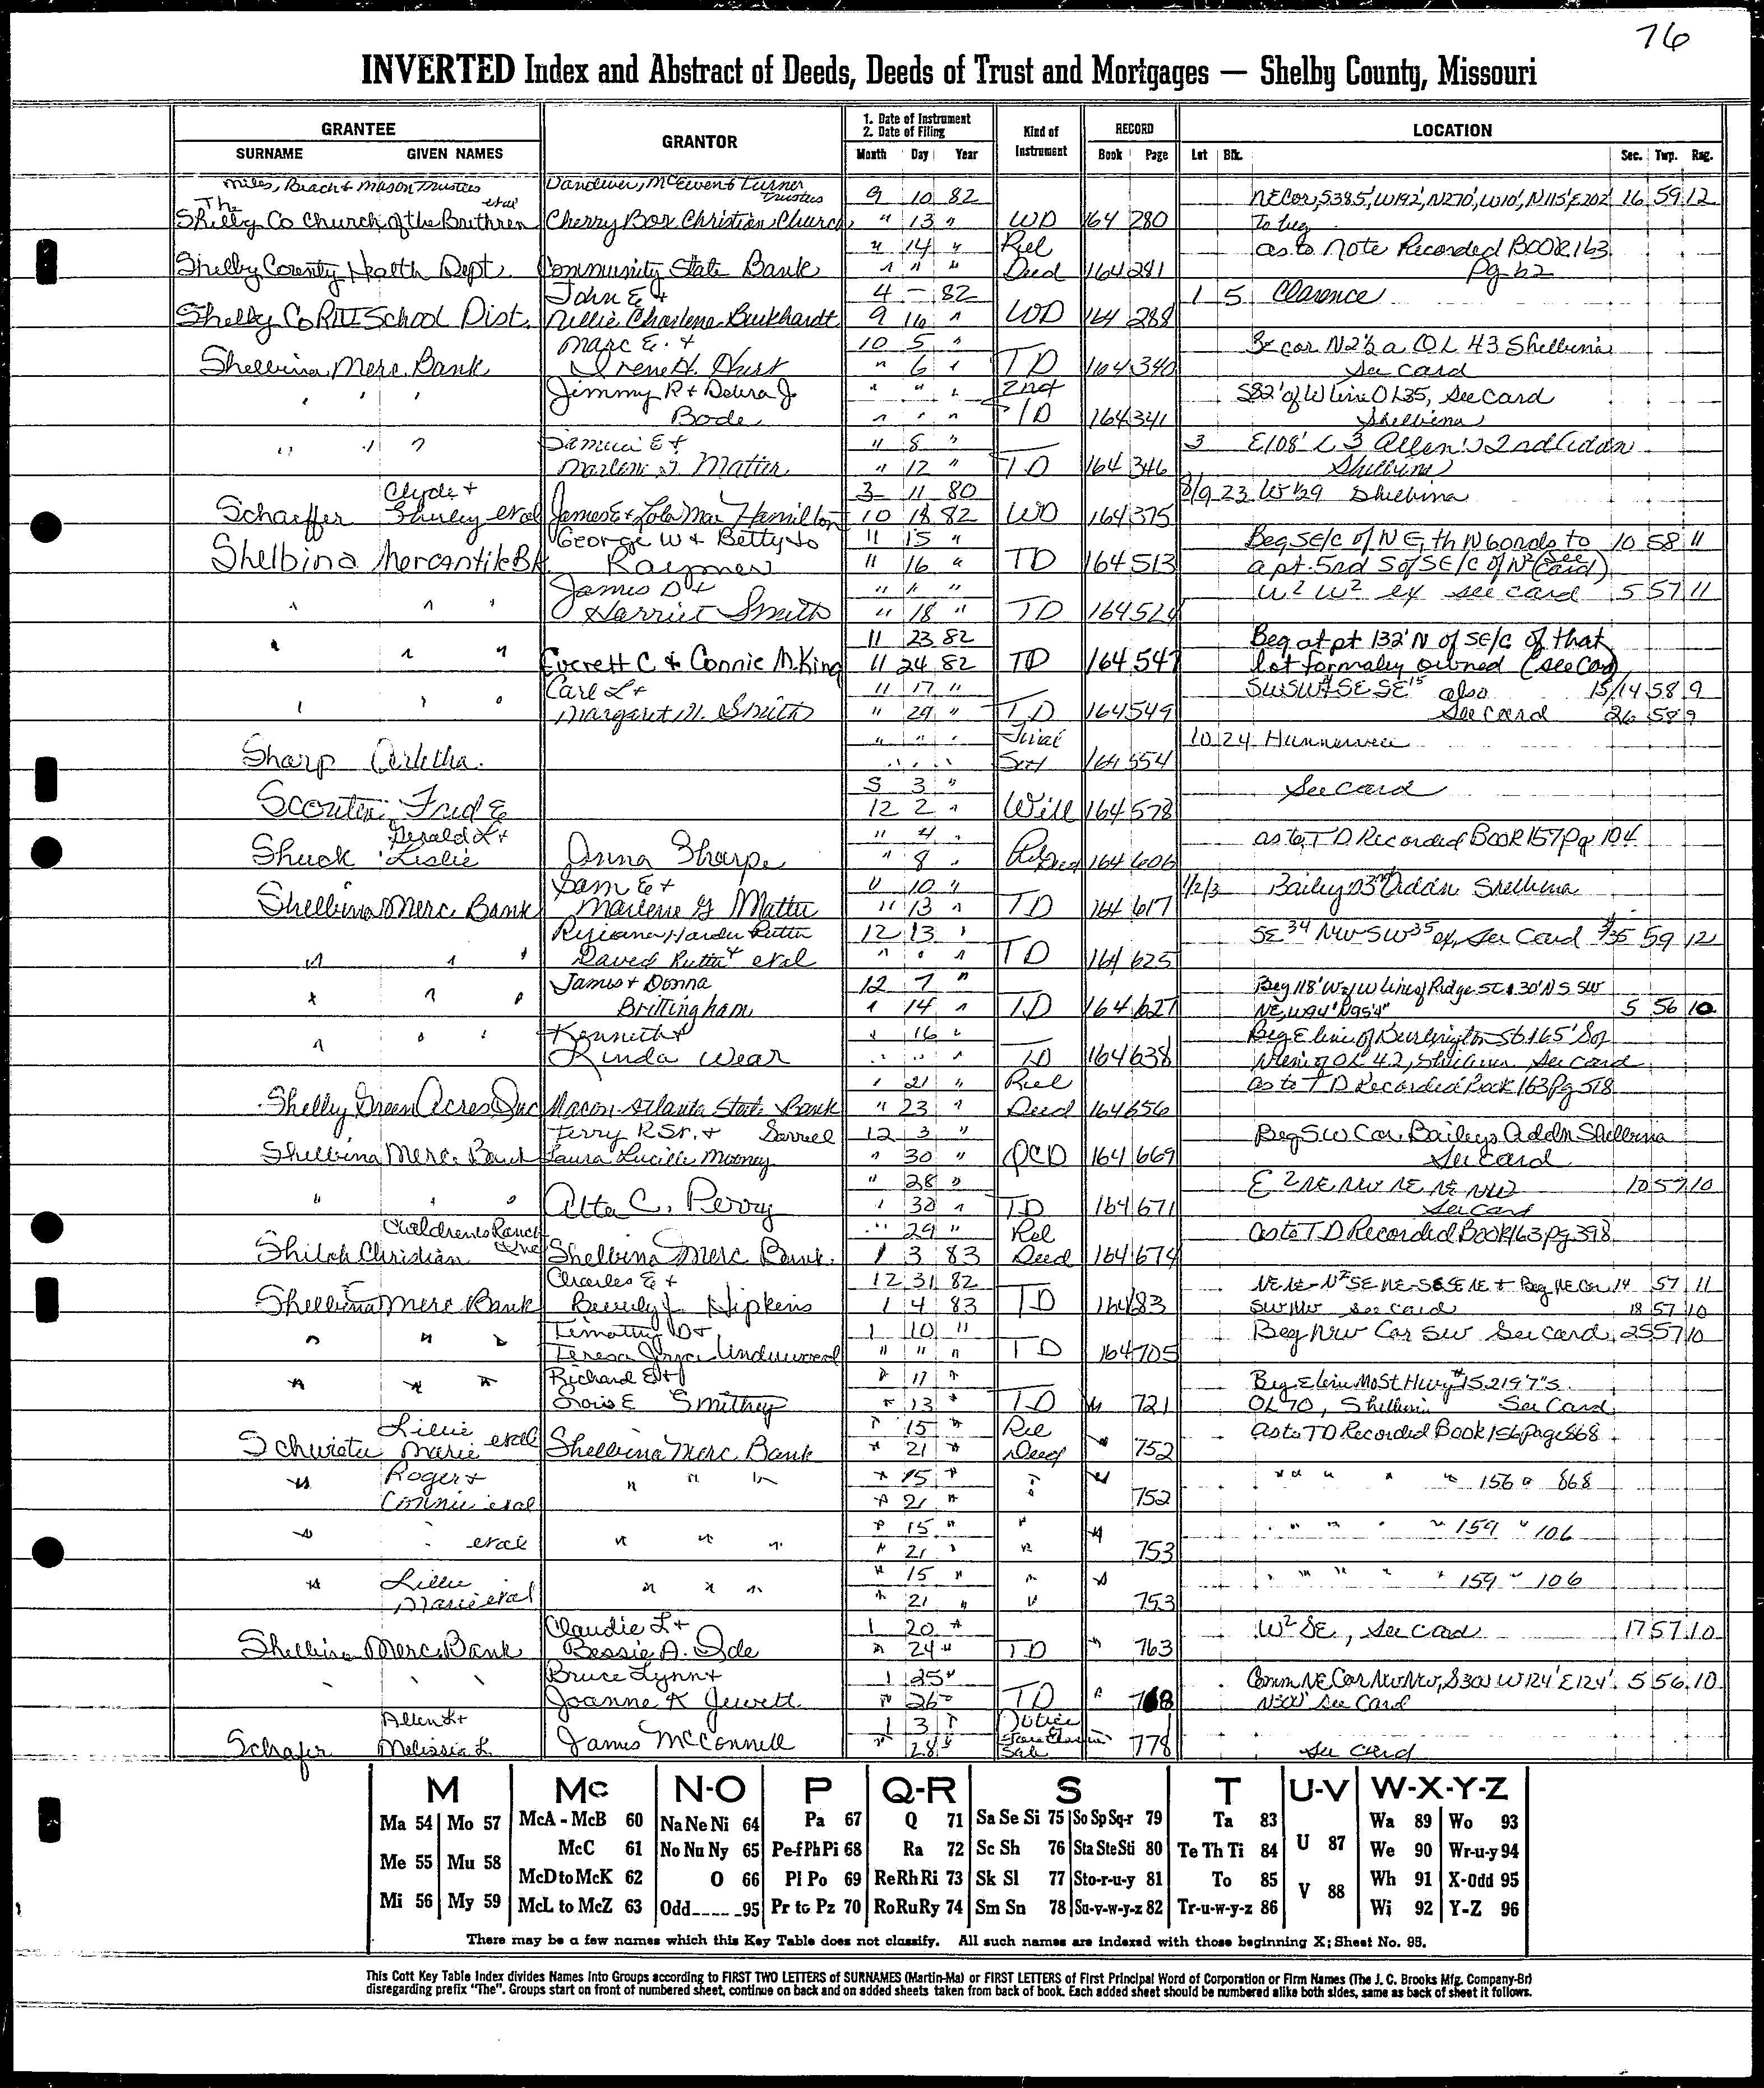 76
INVERTED Index and Abstract of Deeds, Deeds of Trust and Mortgages — Shelby County, Missouri
GRANTEE GRANTOR 1. Date of Instrument 2. Date of Filing Kind of Instrument RECORD LOCATION
SURNAME GIVEN NAMES Month Day Year Book Page Lot Blk. Sec. Twp. Rng.
Miles, Beach & Mason Trustees etal Vandiver, McEwen & Turner Trustees 9 10 82 NE Cor, S385', W192', N270', W10', N115', E202' 16 59 12
The Shelby Co Church of the Brethren Cherry Box Christian Church " 13 " WD 164 280 To beg
" 14 " Rel as to Note Recorded BOOK 163
Shelby County Health Dept Community State Bank " " " Deed 164 281 Pg 62
John E + 4 - 82 1 5 Clarence
Shelby Co RIII School Dist. Nellie Charlene Burkhardt 9 16 " WD 164 288
Marc E. + 10 5 " Se cor N2½ a OL 43 Shelbina
Shelbina Merc. Bank Irene H. Hurt " 6 " TD 164 340 See card
Jimmy R + Debra J. " " " 2nd S82' of W line OL35, See Card
" " " Bode " " " TD 164 341 Shelbina
Samuel E + " 8 " 3 E108' L 3 Allen's 2nd Addn
" " " Marlene G. Matter " 12 " TD 164 346 Shelbina
Clyde + 3 11 80 8/9 23 W½9 Shelbina
Schaeffer Shirley etal James E + Lola Mae Hamilton 10 18 82 WD 164 375
George W + Betty Jo 11 15 " Beg SE/c of NE, th N 60 rds to 10 58 11
Shelbina Mercantile Bk. Raymer 11 16 " TD 164 513 a pt. 5rd S of SE/c of N² (See Card)
James D + " " " W² W² ex see card 5 57 11
" " " Harriet Smith " 18 " TD 164 524
11 23 82 Beg at pt 132' N of SE/c of that
" " " Everett C & Connie M. King 11 24 82 TD 164 547 lot formaley owned (see Card)
Carl L + 11 17 " SWSW SE SE 15 also 15/14 58 9
" " " Margaret M. Smith " 29 " TD 164 549 See card 26 58 9
" " " Final 10 24 Hunnewell
Sharp Arletha. " " " Sett 164 554
5 3 " See Card
Scouten Fred E 12 2 " Will 164 578
Gerald L + " 4 " as to T D Recorded BOOK 157 Pg 104
Shuck Leslie Anna Sharpe " 8 " Rel Deed 164 606
Sam E + 11 10 " 1/2/3 Bailey's 3rd Addn Shelbina
Shelbina Merc. Bank Marlene G Matter " 13 " TD 164 617
Harder Rutter 12 13 " SE 34 NW SW 35 ex, See Card 34/35 59 12
" " " David Rutter + etal " " " TD 164 625
James + Donna 12 7 " Beg 118' W of W line of Ridge St & 30' N S SW
" " " Brittingham " 14 " TD 164 627 NE, W94' N95'4" 5 56 10
Kenneth + " 16 " Beg E line of Burlington St 165' S of
" " " Linda Wear " " " TD 164 638 N line of OL 42, Shelbina See card
" 21 " Rel as to T D Recorded Book 163 Pg 518
Shelby Green Acres Inc Macon-Atlanta State Bank " 23 " Deed 164 656
Terry R Sr. + Darrell 12 3 " Beg SW Cor. Baileys Addn Shelbina
Shelbina Merc. Bank Laura Lucille Mooney " 30 " QCD 164 669 See card
" 28 " E² NE NW NE NE NW 10 57 10
" " " Alta C. Perry " 30 " TD 164 671 See Card
Childrens Ranch Inc " 29 " Rel as to T D Recorded Book 163 Pg 398
Shiloh Christian Shelbina Merc Bank. 1 3 83 Deed 164 674
Charles E + 12 31 82 NE NE-N² SE NE-SE SE NE + Beg NE Cor 14 57 11
Shelbina Merc Bank Beverly J. Hipkins 1 4 83 TD 164 83 SW NW see card 18 57 10
Timothy D + 1 10 " Beg NW Cor SW See card 25 57 10
" " " Teresa Joyce Underwood " " " TD 164 705
Richard E + " 11 " Beg E line Mo St Hwy #15 219 7" S.
" " " Lois E Smithey " 13 " TD " 721 OL 70, Shelbina See Card
Lillie " 15 " Rel as to T D Recorded Book 156 page 868
Schwieter Marie etal Shelbina Merc. Bank " 21 " Deed " 752
" Roger + " " " " 15 " " " " " " " " 156 " 868
Connie etal " 21 " 752
" 15 " " " " " " " 159 " 106
" " etal " " " " 21 " " " 753
" Lillie " " " " 15 " " " " " " " " 159 " 106
Marie etal " 21 " " 753
Claudie L + 1 20 " W² SE, See Card 17 57 10
Shelbina Merc. Bank Bessie A. Ode " 24 " TD " 763
Bruce Lynn + 1 25 " Comm NE Cor NW NW, S 301 W124' E124' 5 56 10
" " " Joanne K Jewett " 26 " TD " 768 See Card
Allen L + 1 3 " Notice
Schafer Melissia L. James McConnell " 28 " Foreclosure Sale 778 See card
M Mc N-O P Q-R S T U-V W-X-Y-Z
Ma 54 Mo 57 McA - McB 60 Na Ne Ni 64 Pa 67 Q 71 Sa Se Si 75 So Sp Sq-r 79 Ta 83 U 87 Wa 89 Wo 93
Me 55 Mu 58 McC 61 No Nu Ny 65 Pe-f Ph Pi 68 Ra 72 Sc Sh 76 Sta Ste Sti 80 Te Th Ti 84 We 90 Wr-u-y 94
McD to McK 62 O 66 Pl Po 69 Re Rh Ri 73 Sk Sl 77 Sto-r-u-y 81 To 85 V 88 Wh 91 X-Odd 95
Mi 56 My 59 McL to McZ 63 Odd 95 Pr to Pz 70 Ro Ru Ry 74 Sm Sn 78 Su-v-w-y-z 82 Tr-u-w-y-z 86 Wi 92 Y-Z 96
There may be a few names which this Key Table does not classify. All such names are indexed with those beginning X; Sheet No. 95.
This Cott Key Table Index divides Names into Groups according to FIRST TWO LETTERS of SURNAMES (Martin-Ma) or FIRST LETTERS of First Principal Word of Corporation or Firm Names (The J. C. Brooks Mfg. Company-Br)
disregarding prefix "The". Groups start on front of numbered sheet, continue on back and on added sheets taken from back of book. Each added sheet should be numbered alike both sides, same as back of sheet it follows.